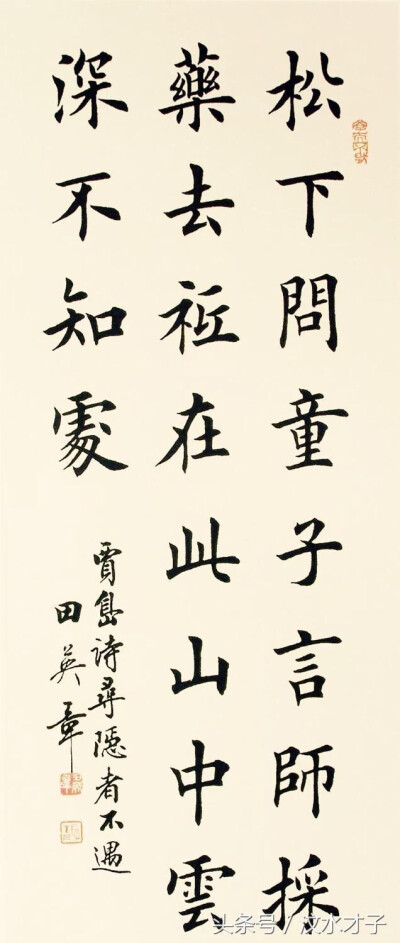 松下問童子言師採
藥去祗在此山中雲
深不知處
賈島詩尋隱者不遇
田英章
头条号 / 汶水才子